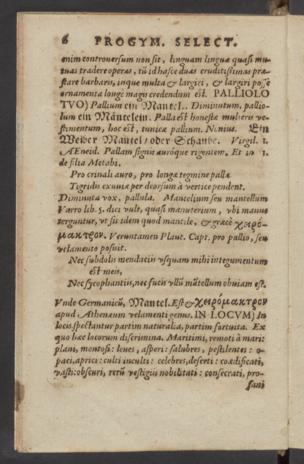 6 PROGYM. SELECT.
enim controversum non sit, linguam linguæ quasi mu-
tuas tradere operas, tū id hasce duas eruditissimas præ-
stare barbaris, inque multa & largiri, & largiri posse
ornamenta longi magis credendum est. PALLIOLO
TVO) Pallium ein Mantel.. Diminutum, pallio-
lum ein Mäntelein. Palla est honestæ mulieris ve-
stimentum, hoc est, tunicæ pallium. Nonius. Ein
Weiber Mäntel oder Schaube. Virgil. 1.
Æneid. Pallam signis auróque rigentem, Et in 1.
de filia Metabi.
Pro crinali auro, pro longæ tegmine pallæ
Tigridis exuviæ per deorsum à vertice pendent.
Diminuta vox, pallula. Mantelium seu mantellum
Varro lib. 5. dici vult, quasi manuterium, vbi manus
terguntur, vt sit idem quod mantile, & græcè χειρό-
μακτρον. Veruntamen Plaut. Capt. pro pallio, seu
velamento posuit.
Nec subdolis mendaciis vsquam mihi integumentum
est meis,
Nec sycophantiis, nec fucis vllū mātellum obviam est.
Vnde Germanicū, Mantel. Est & χειρόμακτρον
apud Athenæum velamenti genus. IN LOCVM) In
locis spectantur partim naturalia, partim fortuita. Ex
quo hæc locorum discrimina. Maritimi, remoti à mari:
plani, montosi: leues, asperi: salubres, pestilentes: o-
paci, aprici: culti inculti: celebres, deserti: coædificati,
vasti: obscuri, rerū vestigiis nobilitati: consecrati, pro-
fani